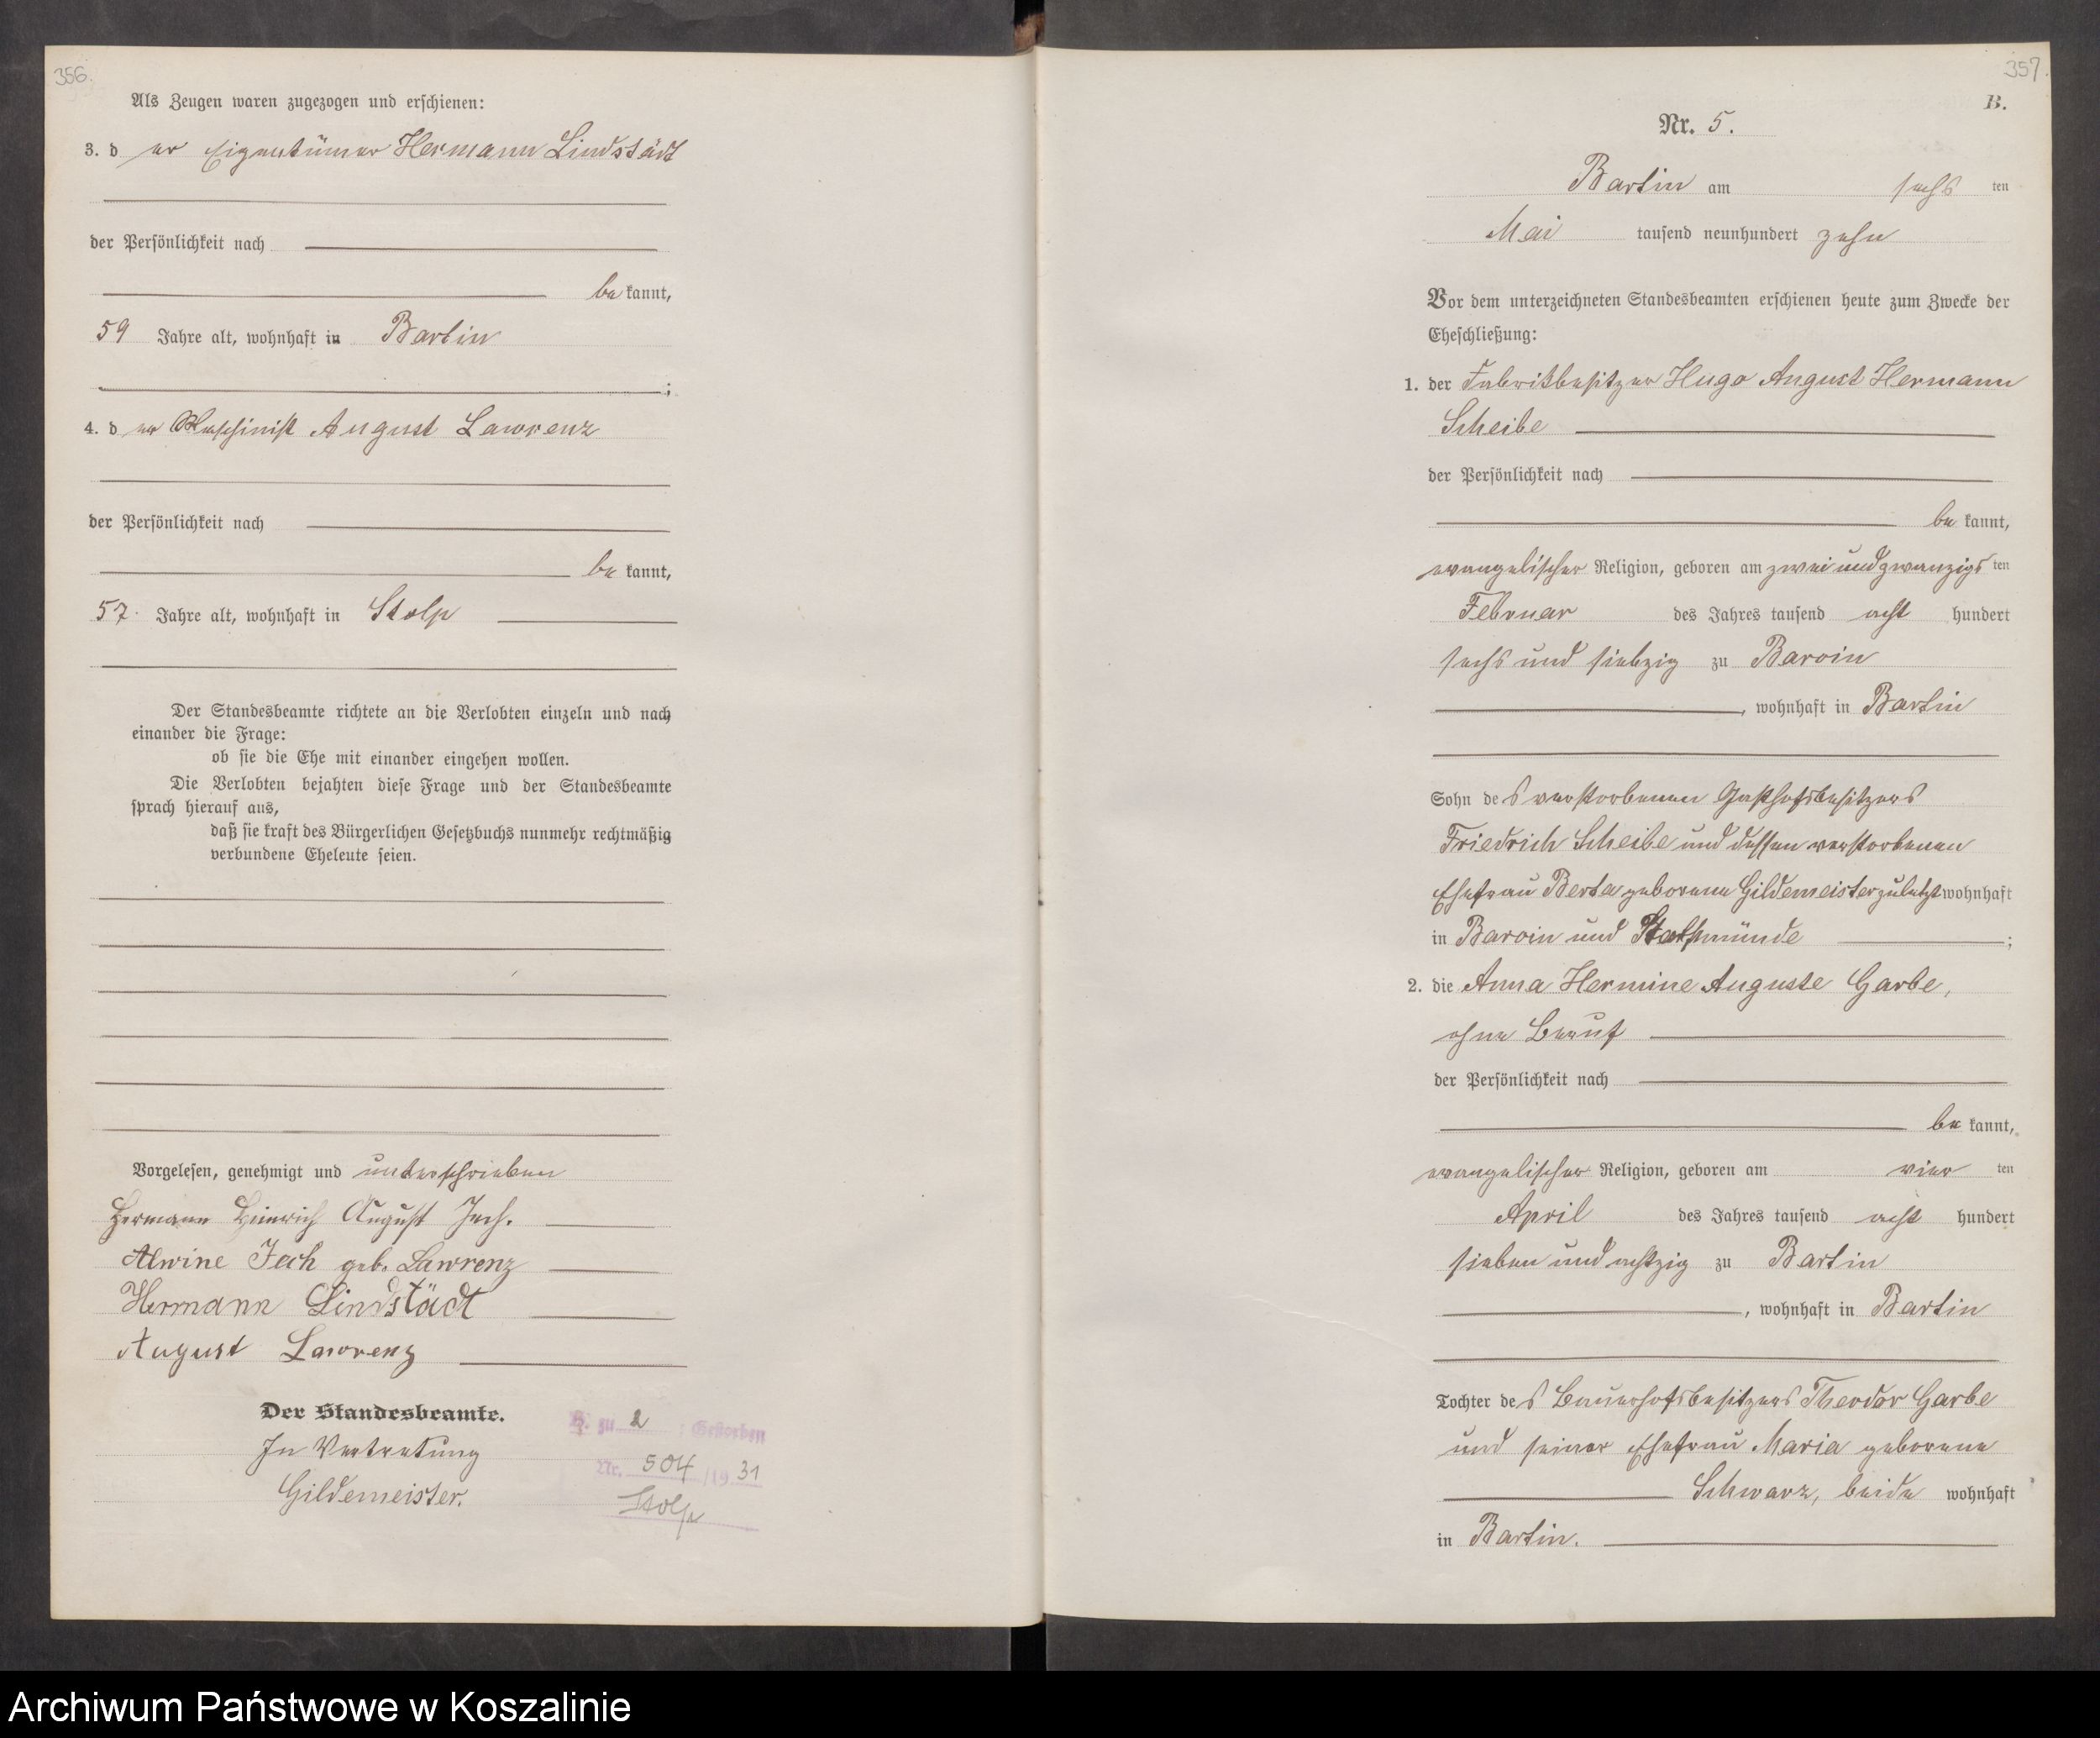 356.
Als Zeugen waren zugezogen und erschienen:
3. der Eigentümer Hermann Lindstädt
der Persönlichkeit nach
bekannt,
59 Jahre alt, wohnhaft in Bartin
;
4. der Maschinist August Lawrenz
der Persönlichkeit nach
bekannt,
57 Jahre alt, wohnhaft in Stolp
Der Standesbeamte richtete an die Verlobten einzeln und nach
einander die Frage:
ob sie die Ehe mit einander eingehen wollen.
Die Verlobten bejahten diese Frage und der Standesbeamte
sprach hierauf aus,
daß sie kraft des Bürgerlichen Gesetzbuchs nunmehr rechtmäßig
verbundene Eheleute seien.
Vorgelesen, genehmigt und unterschrieben
Hermann Heinrich August Jech.
Alwine Jech geb. Lawrenz
Hermann Lindstädt
August Lawrenz
Der Standesbeamte.
In Vertretung
Gildemeister.
H. zu 2 : Gestorben
Nr. 504 /19 31
Stolp
357.
B.
Nr. 5.
Bartin am sechsten
Mai tausend neunhundert zehn
Vor dem unterzeichneten Standesbeamten erschienen heute zum Zwecke der
Eheschließung:
1. der Fabrikbesitzer Hugo August Hermann
Scheibe
der Persönlichkeit nach
bekannt,
evangelischer Religion, geboren am zweiundzwanzigsten
Februar des Jahres tausend acht hundert
sechs und siebzig zu Barvin
, wohnhaft in Bartin
Sohn des verstorbenen Gasthofsbesitzers
Friedrich Scheibe und dessen verstorbenen
Ehefrau Berta geborene Gildemeister zuletzt wohnhaft
in Barvin und Stolpmünde ;
2. die Anna Hermine Auguste Garbe,
ohne Beruf
der Persönlichkeit nach
bekannt,
evangelischer Religion, geboren am vierten
April des Jahres tausend acht hundert
sieben und achtzig zu Bartin
, wohnhaft in Bartin
Tochter des Bauerhofsbesitzers Theodor Garbe
und seiner Ehefrau Maria geborene
Schwarz, beide wohnhaft
in Bartin.
Archiwum Państwowe w Koszalinie